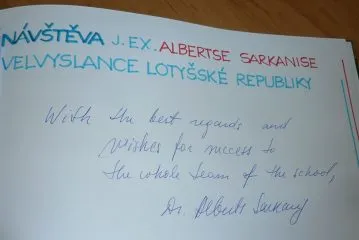 NÁVŠTĚVA J.EX. ALBERTSE SARKANISE
VELVYSLANCE LOTYŠSKÉ REPUBLIKY
With the best regards and
wishes for success to
the whole team of the school,
Dr. Alberts Sarkanis